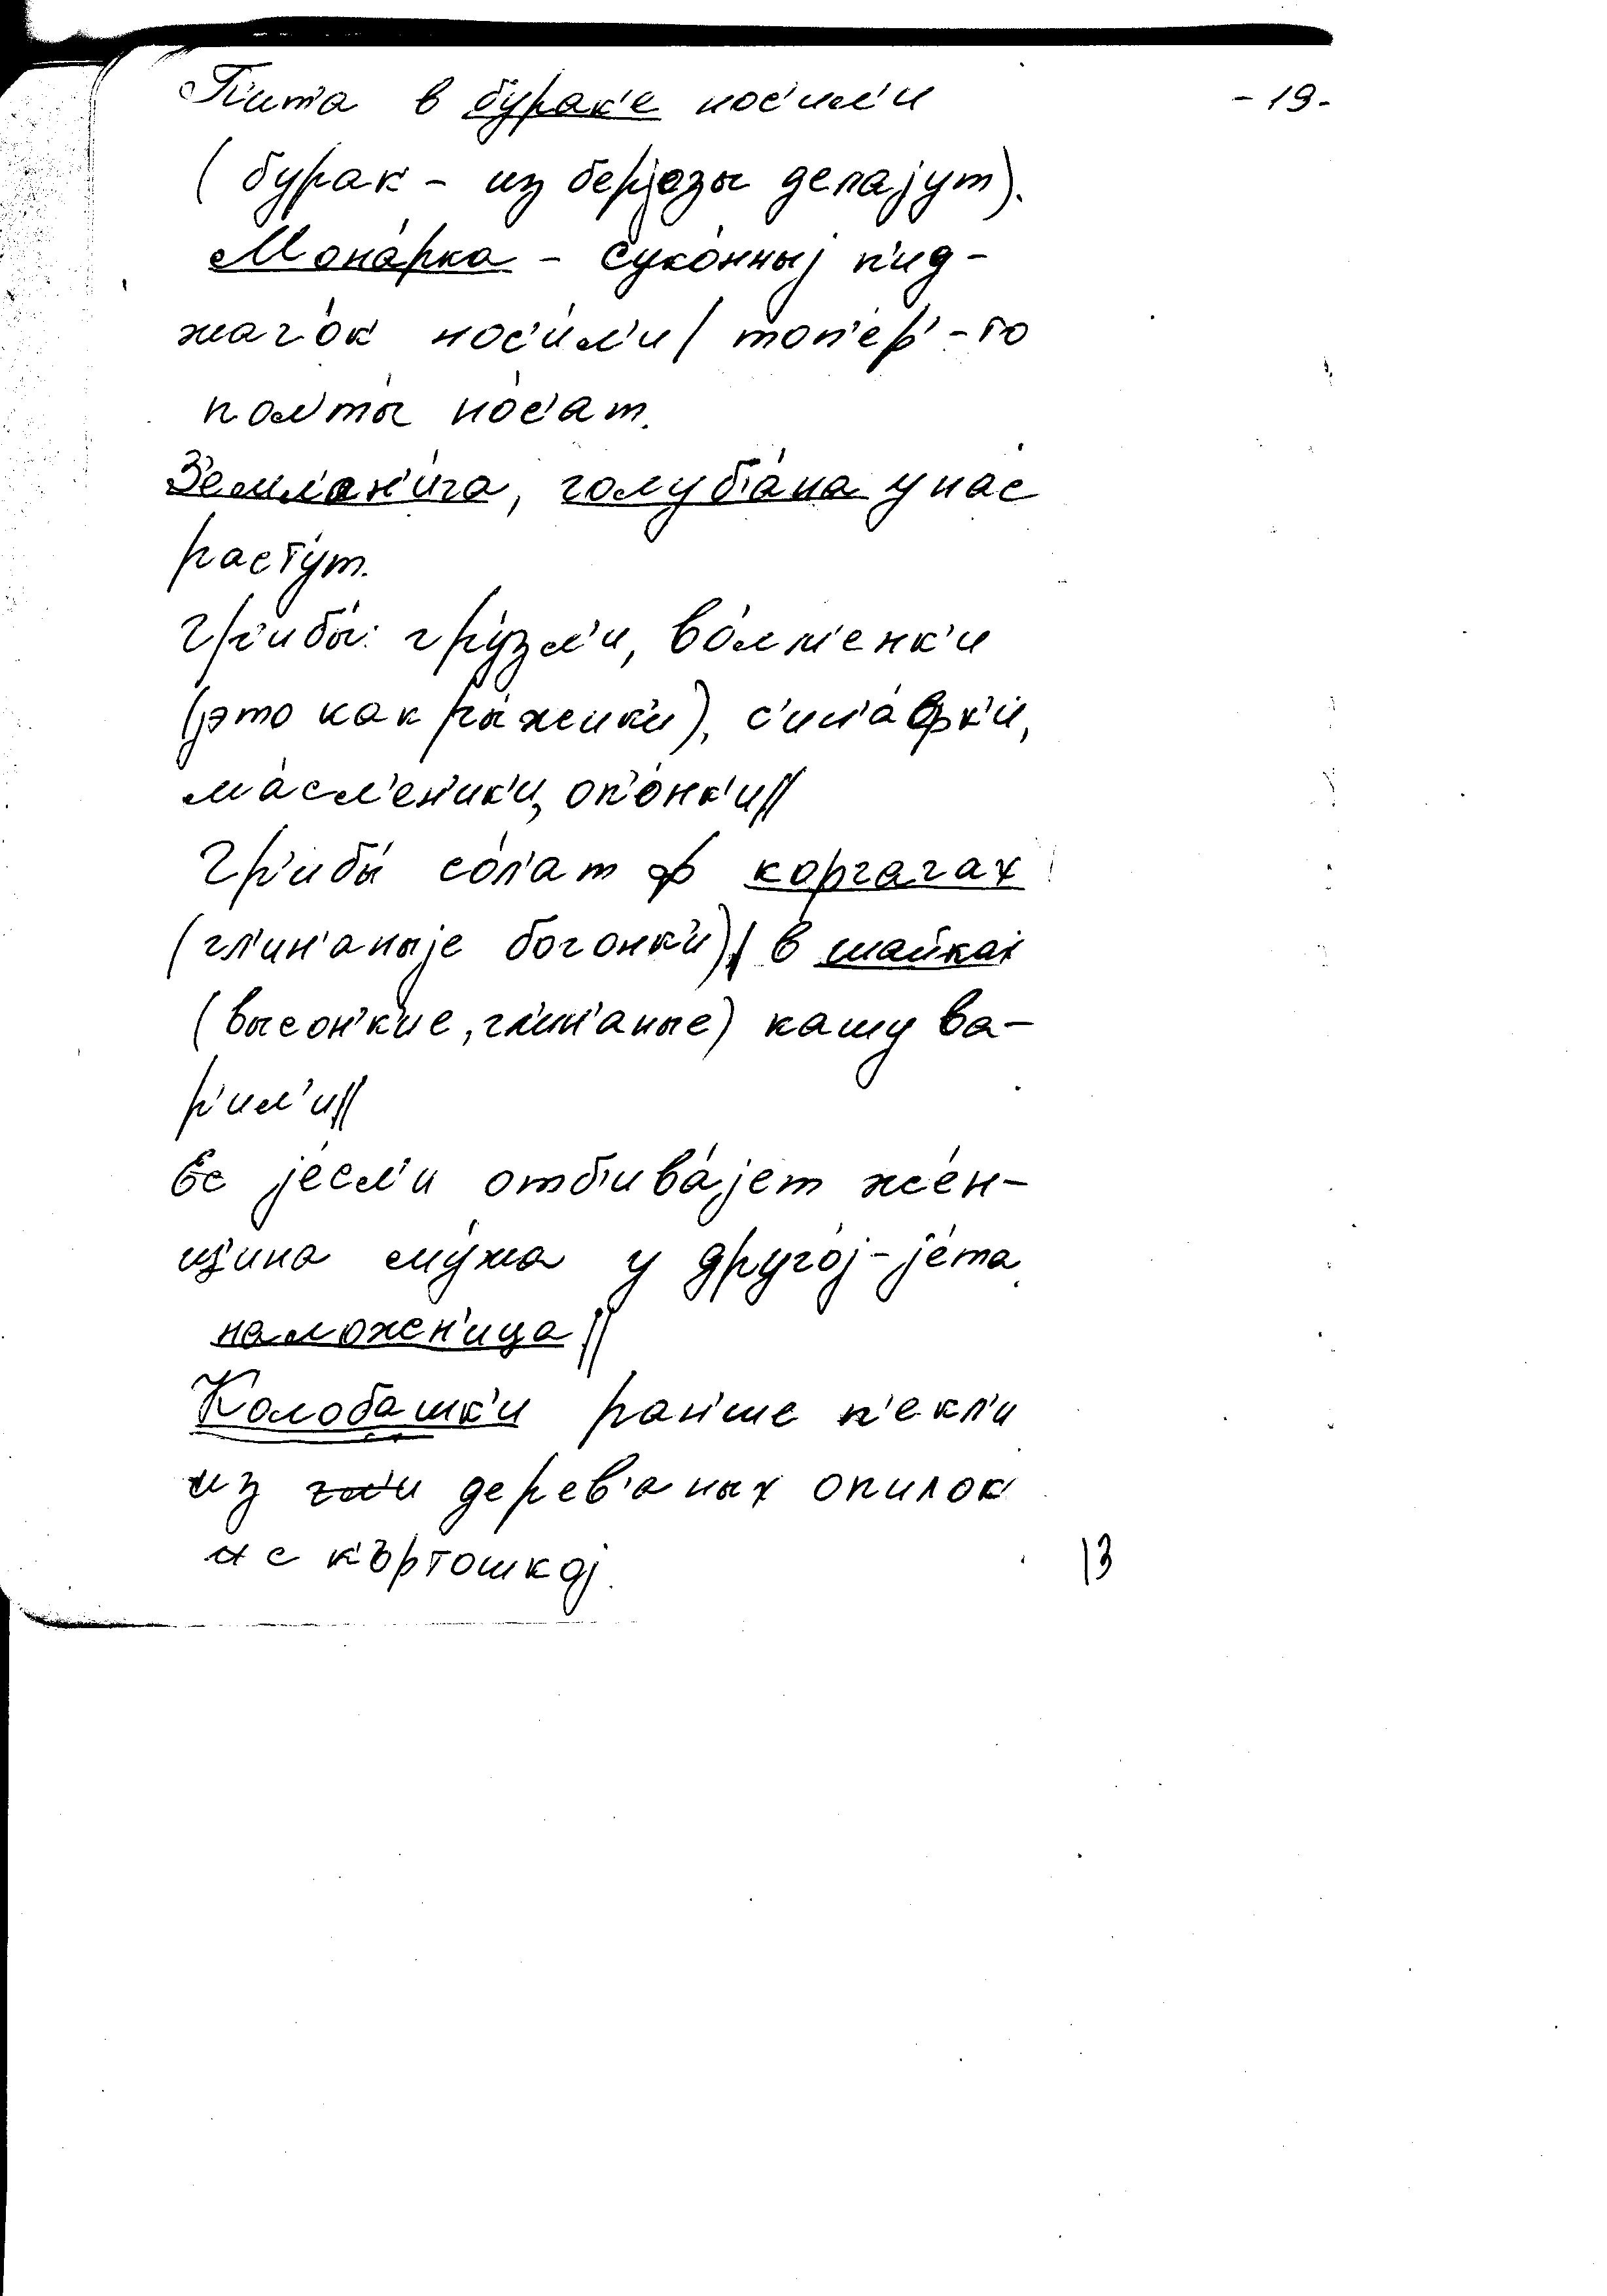 П'ит'а в бурак'е нос'ил'и
- 19 -
(бурак – из берjозы делаjут).
Мона́рка – суко́нныj п'ид-
жач'о́к нос'и́л'и/ топ'е́р'-то
пол'ты́ но́с'ат.
З'емл'ан'и́га, голуб'а́на у нас
расту́т.
Гр'ибы́: гру́зл'и, во́лм'енк'и
(jэто как ры́жик'и), с'ин'а́фк'и,
ма́сл'ен'ик'и, оп'о́нк'и//
Гр'ибы́ со́л'ат ф корчагах
(гл'ин'аныjе бочонк'и)/ в шайках
(высон'к'ие, гл'ин'аные) кашу ва-
р'ил'и//
Ес jе́сл'и отб'ива́jет же́н-
щ'ина му́жа у друго́j – jе́та
наложен'ица//
Колобашк'и ран'ше п'екл'и
из дерев'аных опилок
и с къртошкоj.
13